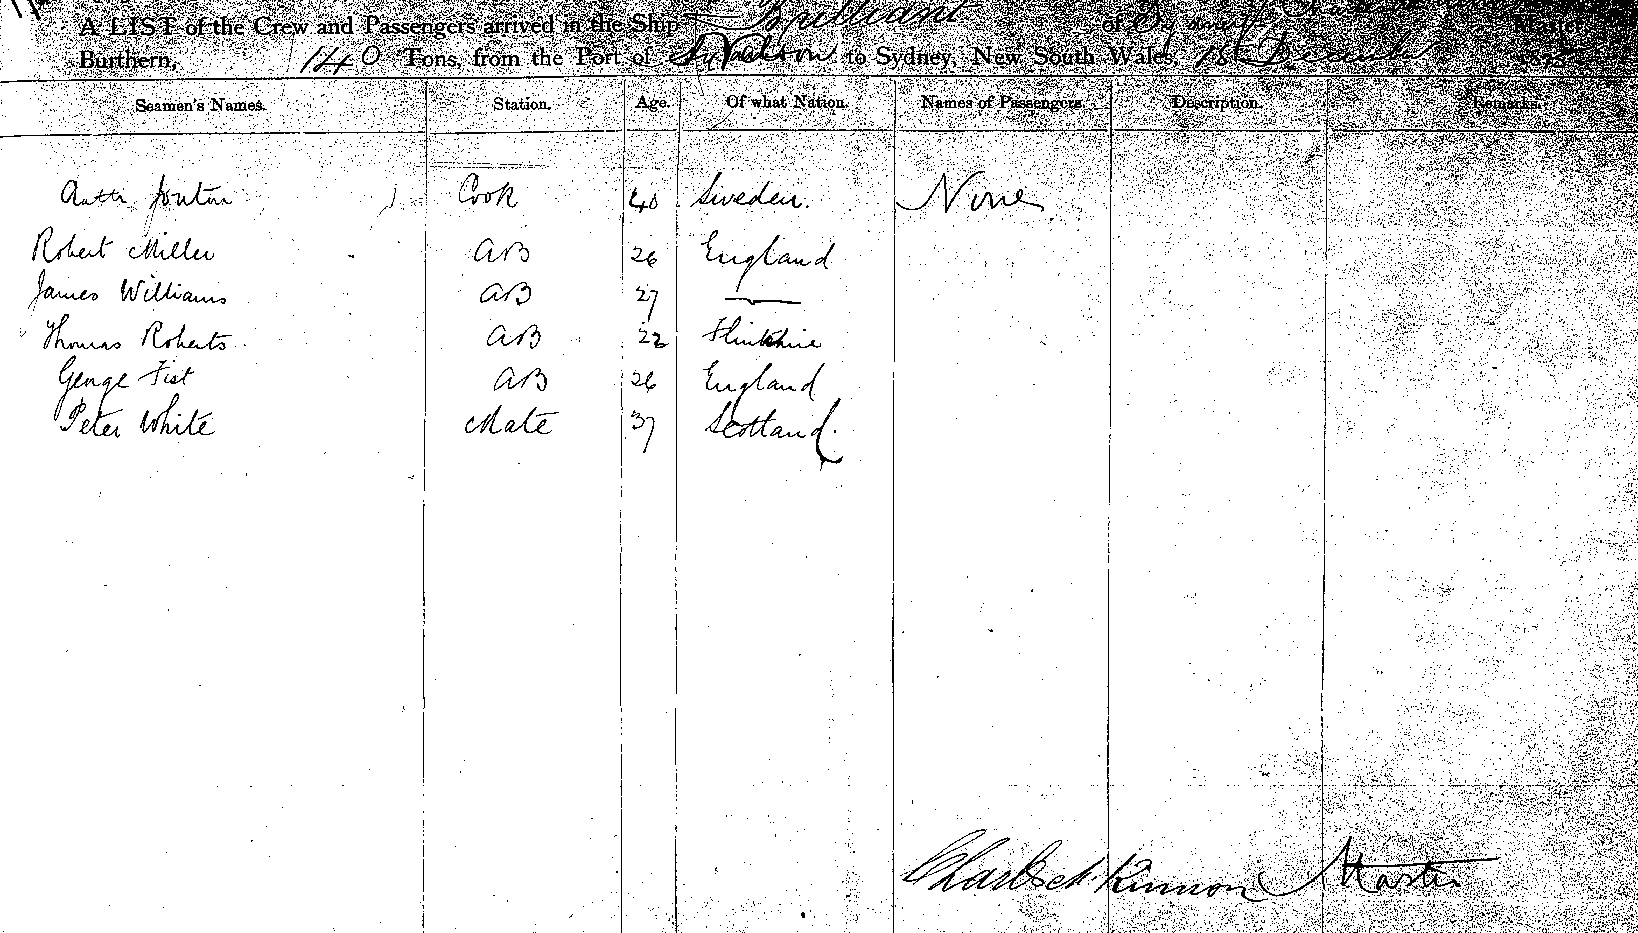 A LIST of the Crew and Passengers arrived in the Ship Brilliant of Master
Burthern, 140 Tons, from the Port of to Sydney, New South Wales, 1st December 187
Seamen's Names. Station. Age. Of what Nation. Names of Passengers. Description. Remarks.
Cook 40 Sweden. None
Robert Miller AB 26 England
James Williams AB 27 —
Thomas Roberts AB 22 Flintshire
George Fist AB 26 England
Peter White Mate 37 Scotland.
Charles McKinnon Master